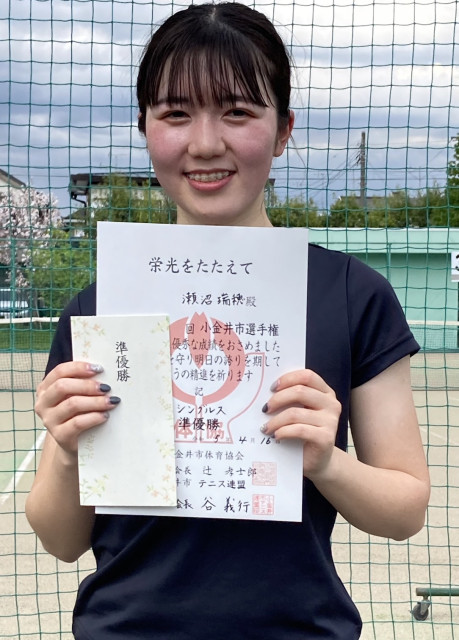 栄光をたたえて
瀬沼瑞穂殿
回 小金井市選手権
優秀な成績をおさめました
を守り明日の誇りを期して
うの精進を祈ります
記
シングルス
準優勝
4月16
金井市体育協会
会長 辻 孝士郎
井市 テニス連盟
会長 谷 義行
準優勝